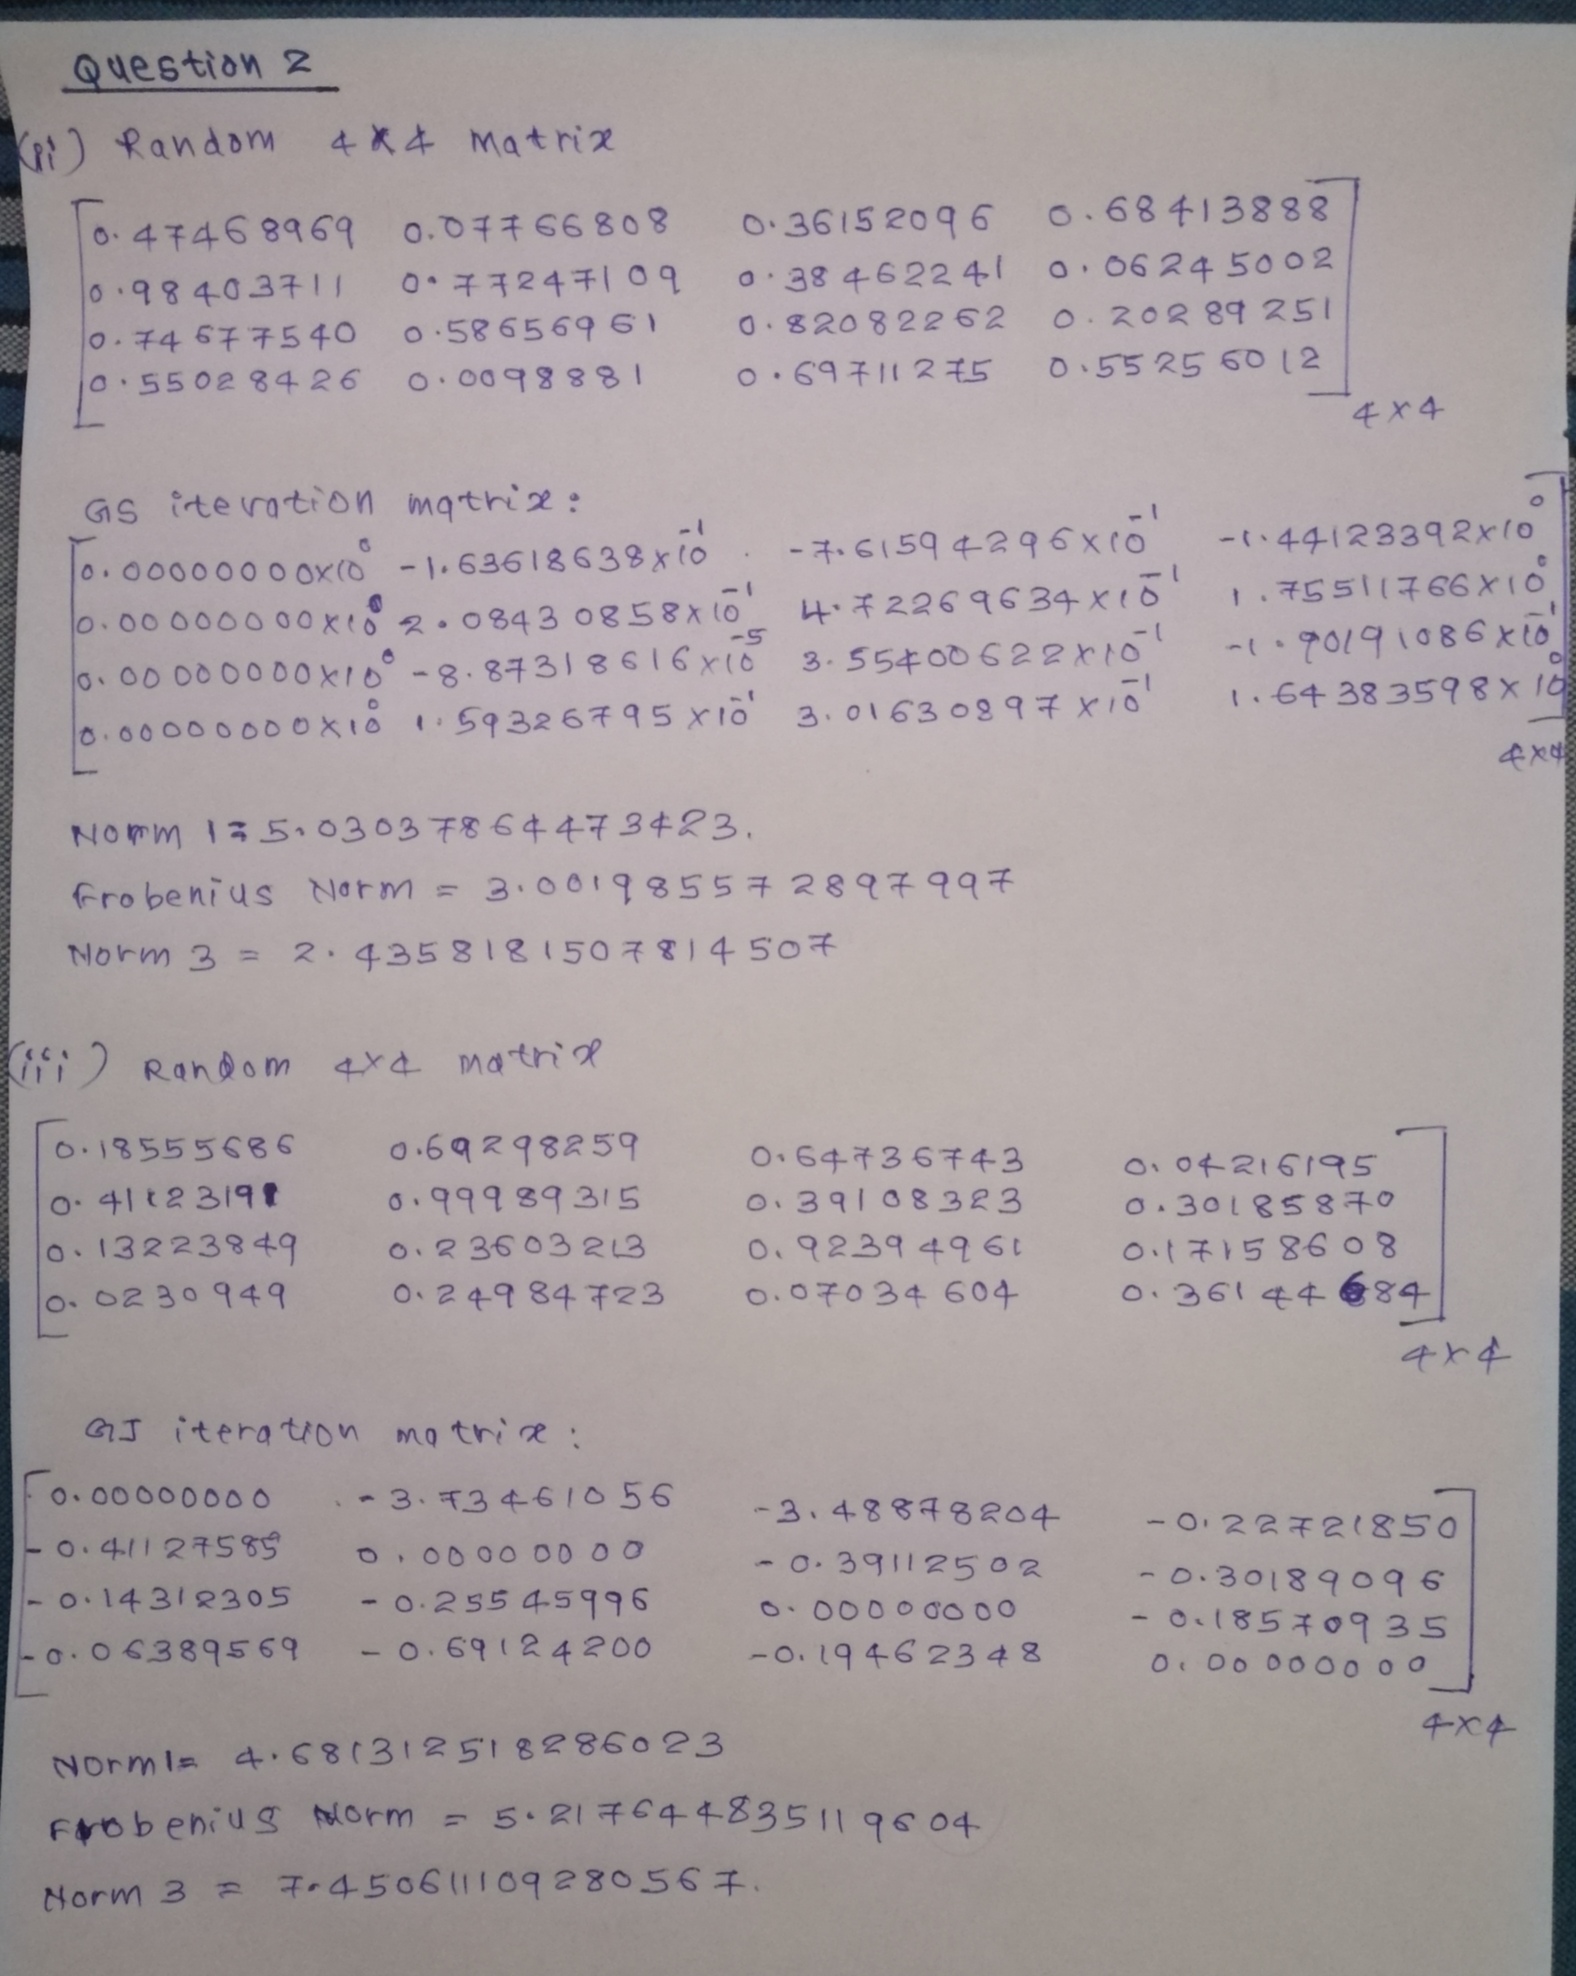 Question 2
(ii) Random 4x4 matrix
0.47468969 0.07766808 0.36152096 0.68413888
0.98403711 0.77247109 0.38462241 0.06245002
0.74677540 0.58656961 0.82082262 0.20289251
0.55028426 0.0098881 0.69711275 0.55256012
4x4
GS iteration matrix:
0.00000000x10⁰ -1.63618638x10⁻¹ -7.61594296x10⁻¹ -1.44123392x10⁰
0.00000000x10⁰ 2.08430858x10⁻¹ 4.72269634x10⁻¹ 1.75511766x10⁰
0.00000000x10⁰ -8.87318616x10⁻⁵ 3.55400622x10⁻¹ -1.90191086x10⁻¹
0.00000000x10⁰ 1.59326795x10⁻¹ 3.01630897x10⁻¹ 1.64383598x10⁰
4x4
Norm 1 = 5.030378644473423.
Frobenius Norm = 3.0019855728979 97
Norm 3 = 2.4358181507814507
(iii) Random 4x4 matrix
0.18555686 0.69298259 0.64736743 0.04216195
0.41123191 0.99989315 0.39108323 0.30185870
0.13223849 0.23603213 0.92394961 0.17158608
0.0230949 0.24984723 0.07034604 0.36144684
4x4
GJ iteration matrix:
0.00000000 -3.73461056 -3.48878204 -0.22721850
-0.41127585 0.00000000 -0.39112502 -0.30189096
-0.14312305 -0.25545996 0.00000000 -0.18570935
-0.06389569 -0.69124200 -0.19462348 0.00000000
4x4
Norm1= 4.681312518286023
Frobenius Norm = 5.2176448351119604
Norm 3 = 7.450611109280567.